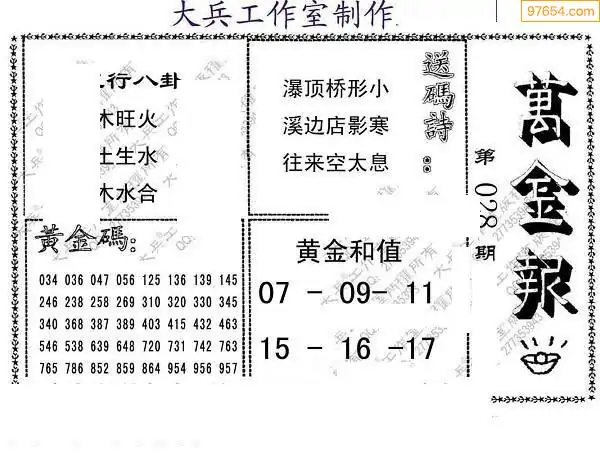 大兵工作室制作
97654.com
行八卦
木旺火
土生水
木水合
送碼詩：
瀑顶桥形小
溪边店影寒
往来空太息
第028期
萬金報
黃金碼：
034 036 047 056 125 136 139 145
246 238 258 269 310 320 330 345
340 368 387 389 403 415 432 463
546 538 639 648 720 731 742 763
765 786 852 859 864 954 956 957
黄金和值
07 - 09- 11
15 - 16 -17